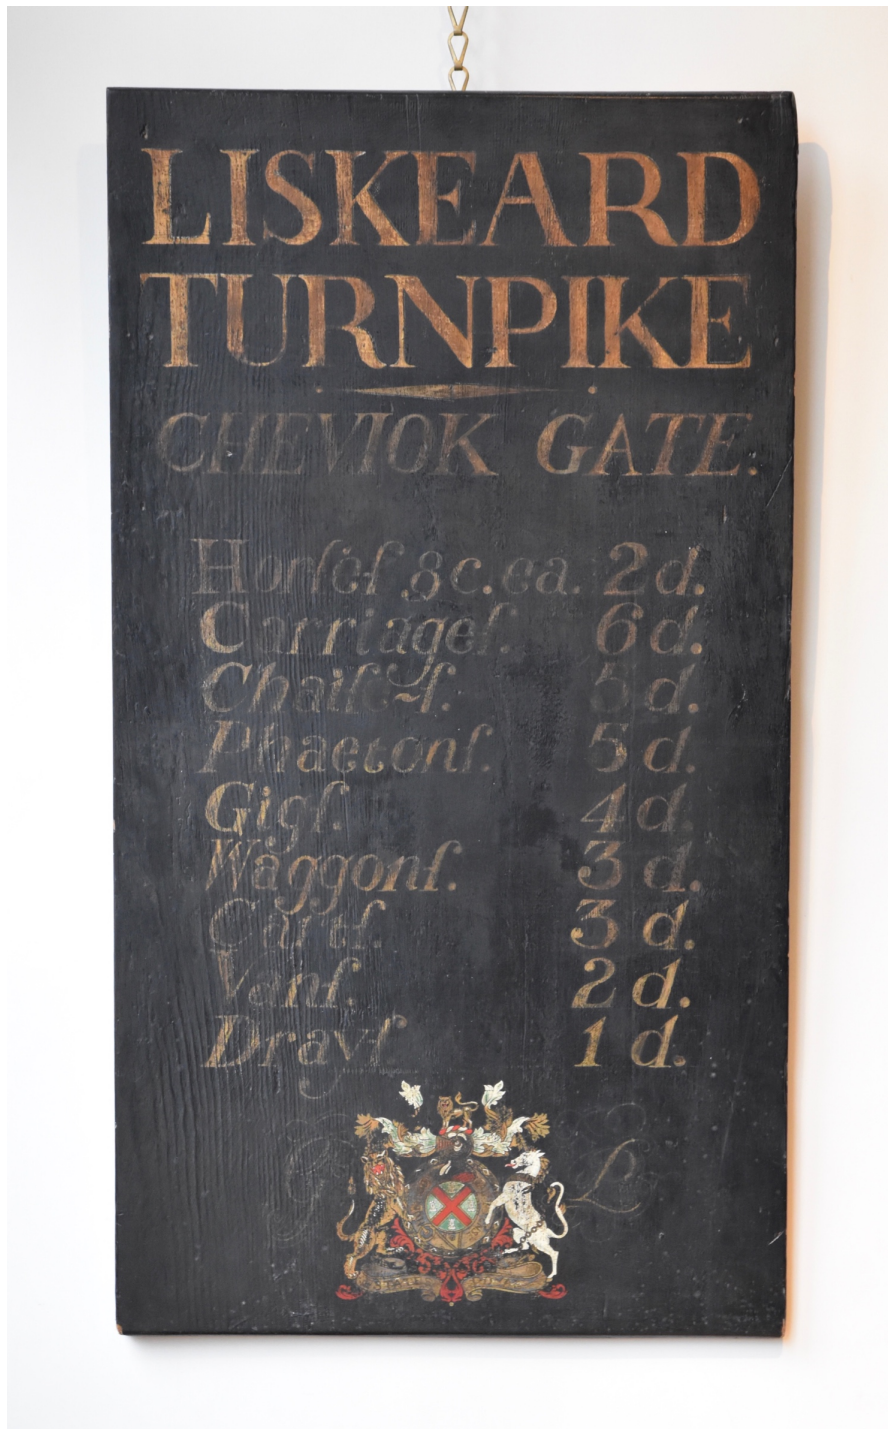 LISKEARD
TURNPIKE
CHEVIOK GATE.
Horſeſ &c. ea. 2d.
Carriageſ. 6d.
Chaiſeſ. 5d.
Phaetonſ. 5d.
Gigſ. 4d.
Waggonſ. 3d.
Cartſ. 3d.
Vanſ. 2d.
Drayſ. 1d.